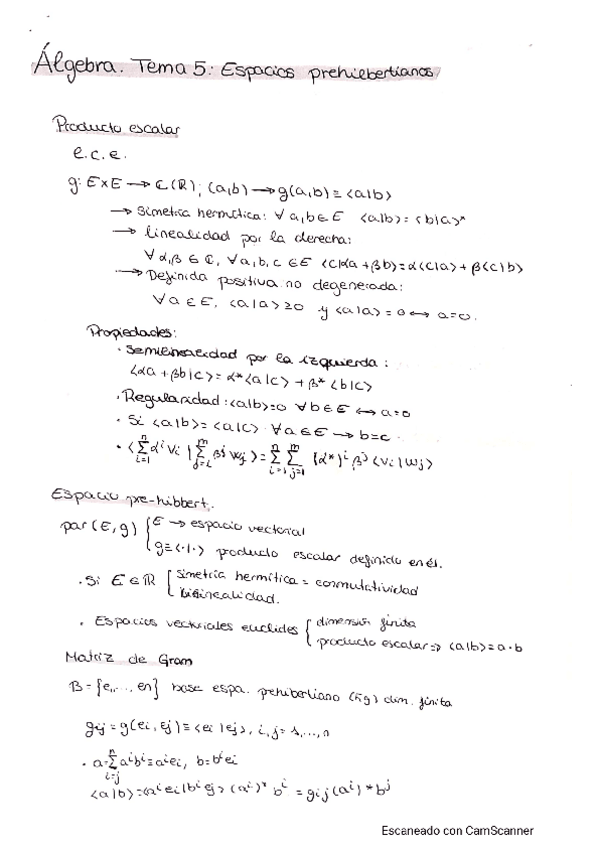 Álgebra. Tema 5: Espacios prehilbertianos
Producto escalar
e.c.e.
g: E×E → ℂ(ℝ); (a,b) → g(a,b) ≡ <a|b>
→ Simetría hermítica: ∀ a,b ∈ E <a|b> = <b|a>*
→ linealidad por la derecha:
∀ α,β ∈ ℂ, ∀ a,b,c ∈ E <c|αa + βb> = α<c|a> + β<c|b>
→ Definida positiva no degenerada:
∀ a ∈ E, <a|a> ≥ 0 y <a|a> = 0 ↔ a=0.
Propiedades:
· Semilinealidad por la izquierda:
<αa + βb|c> = α*<a|c> + β*<b|c>
· Regularidad: <a|b>=0 ∀ b ∈ E ↔ a=0
· Si <a|b> = <a|c> ∀ a ∈ E → b=c
· <∑ⁿᵢ₌₁ αⁱvᵢ | ∑ᵐⱼ₌ᵢ βʲwⱼ> = ∑ⁿᵢ₌₁ ∑ᵐⱼ₌₁ (α*)ⁱ βʲ <vᵢ|wⱼ>
Espacio pre-hibbert.
par (E, g) { E → espacio vectorial
g ≡ <·|·> producto escalar definido en él.
· Si E ∈ ℝ [ simetría hermítica = conmutatividad
bilinealidad.
· Espacios vectoriales euclides { dimensión finita
producto escalar ⇒ <a|b> = a·b
Matriz de Gram
B = {e,..., en} base espa. prehilbertiano (E,g) dim. finita
gij = g(ei, ej) ≡ <ei|ej>, i,j = 1,...,n
· a = ∑ⁿᵢ₌ⱼ aⁱbⁱ = aⁱei, b = bⁱei
<a|b> = <aⁱei|bⁱej> (aⁱ)* bⁱ = gij (aⁱ)* bʲ
Escaneado con CamScanner